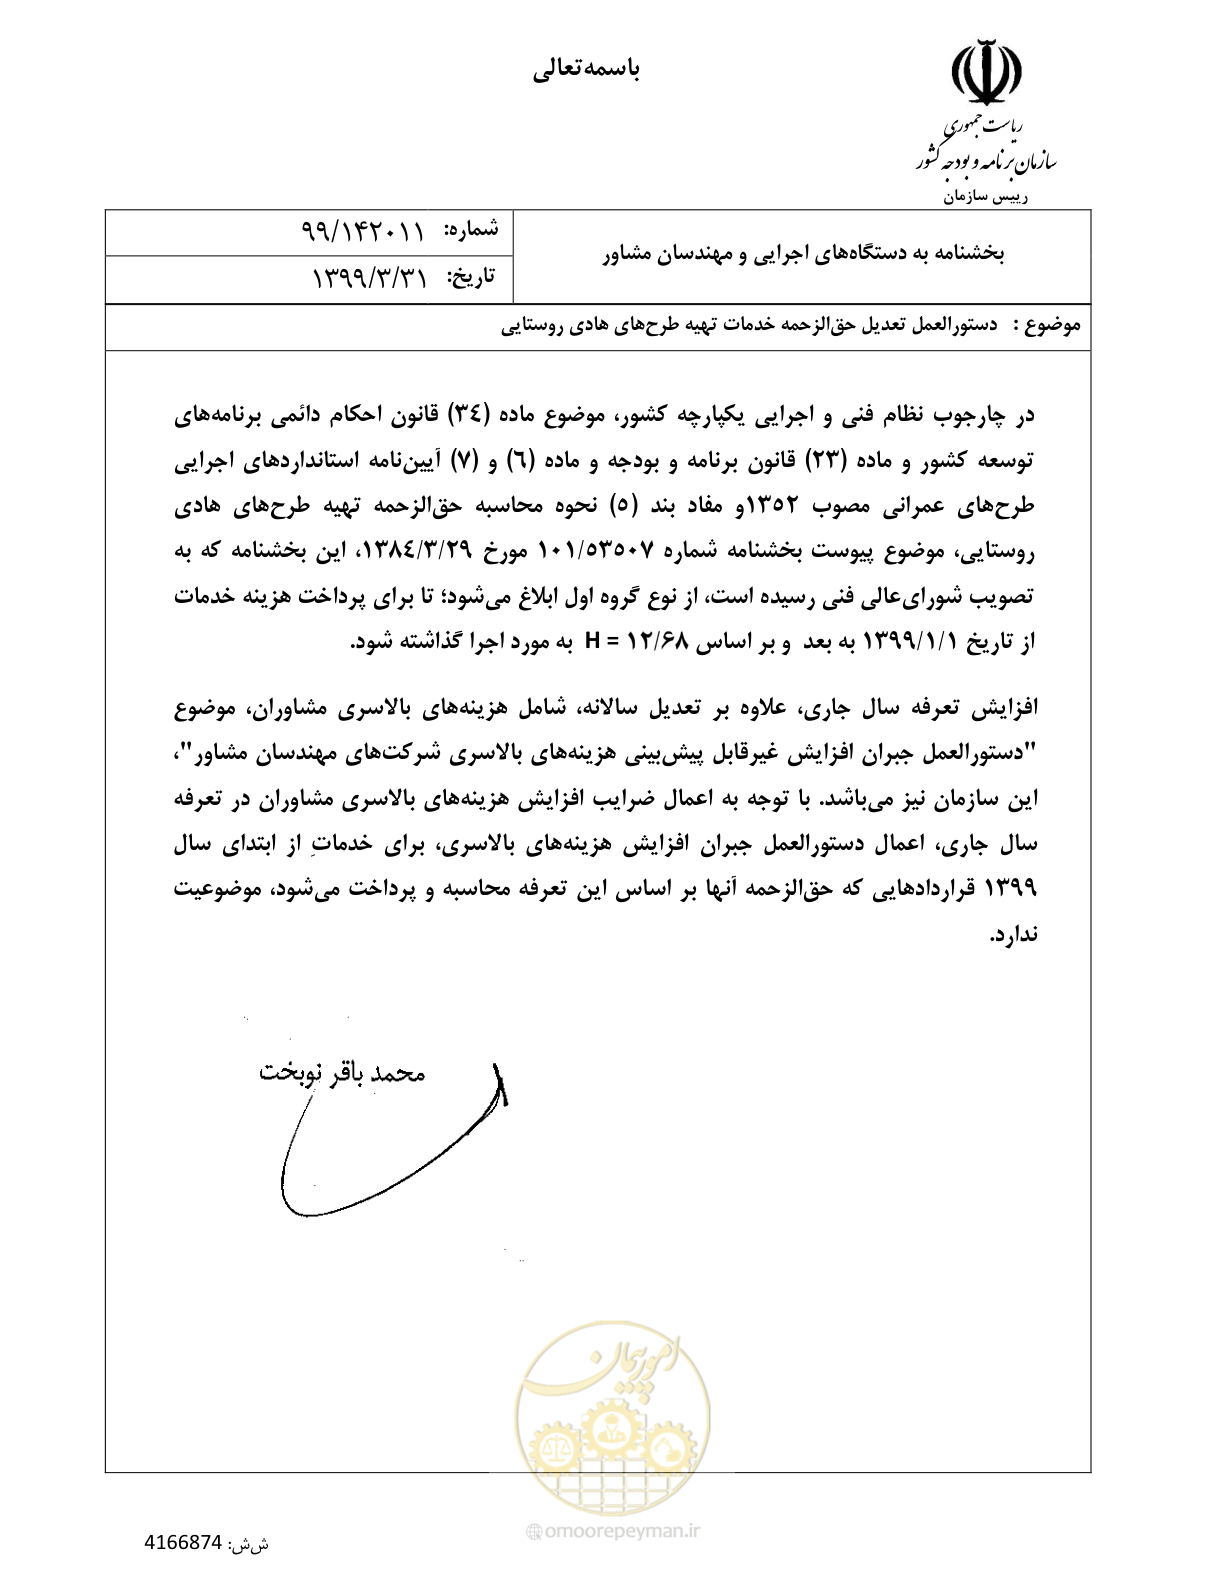 باسمه‌تعالی
ریاست جمهوری
سازمان برنامه و بودجه کشور
رییس سازمان
بخشنامه به دستگاه‌های اجرایی و مهندسان مشاور
شماره: ۹۹/۱۴۲۰۱۱
تاریخ: ۱۳۹۹/۳/۳۱
موضوع : دستورالعمل تعدیل حق‌الزحمه خدمات تهیه طرح‌های هادی روستایی
در چارچوب نظام فنی و اجرایی یکپارچه کشور، موضوع ماده (٣٤) قانون احکام دائمی برنامه‌های
توسعه کشور و ماده (۲۳) قانون برنامه و بودجه و ماده (٦) و (۷) آیین‌نامه استانداردهای اجرایی
طرح‌های عمرانی مصوب ۱۳٥۲و مفاد بند (٥) نحوه محاسبه حق‌الزحمه تهیه طرح‌های هادی
روستایی، موضوع پیوست بخشنامه شماره ۱۰۱/٥۳٥۰۷ مورخ ۱۳۸٤/۳/۲۹، این بخشنامه که به
تصویب شورای‌عالی فنی رسیده است، از نوع گروه اول ابلاغ می‌شود؛ تا برای پرداخت هزینه خدمات
از تاریخ ۱۳۹۹/۱/۱ به بعد و بر اساس H = ۱۲/۶۸ به مورد اجرا گذاشته شود.
افزایش تعرفه سال جاری، علاوه بر تعدیل سالانه، شامل هزینه‌های بالاسری مشاوران، موضوع
"دستورالعمل جبران افزایش غیرقابل پیش‌بینی هزینه‌های بالاسری شرکت‌های مهندسان مشاور"،
این سازمان نیز می‌باشد. با توجه به اعمال ضرایب افزایش هزینه‌های بالاسری مشاوران در تعرفه
سال جاری، اعمال دستورالعمل جبران افزایش هزینه‌های بالاسری، برای خدماتِ از ابتدای سال
۱۳۹۹ قراردادهایی که حق‌الزحمه آنها بر اساس این تعرفه محاسبه و پرداخت می‌شود، موضوعیت
ندارد.
محمد باقر نوبخت
امور پیمان
omoorepeyman.ir
ش‌ش: 4166874